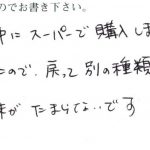 のでお書き下さい。
中に スーパーで 購入しま
たので、戻って 別の種類
味が たまらないです